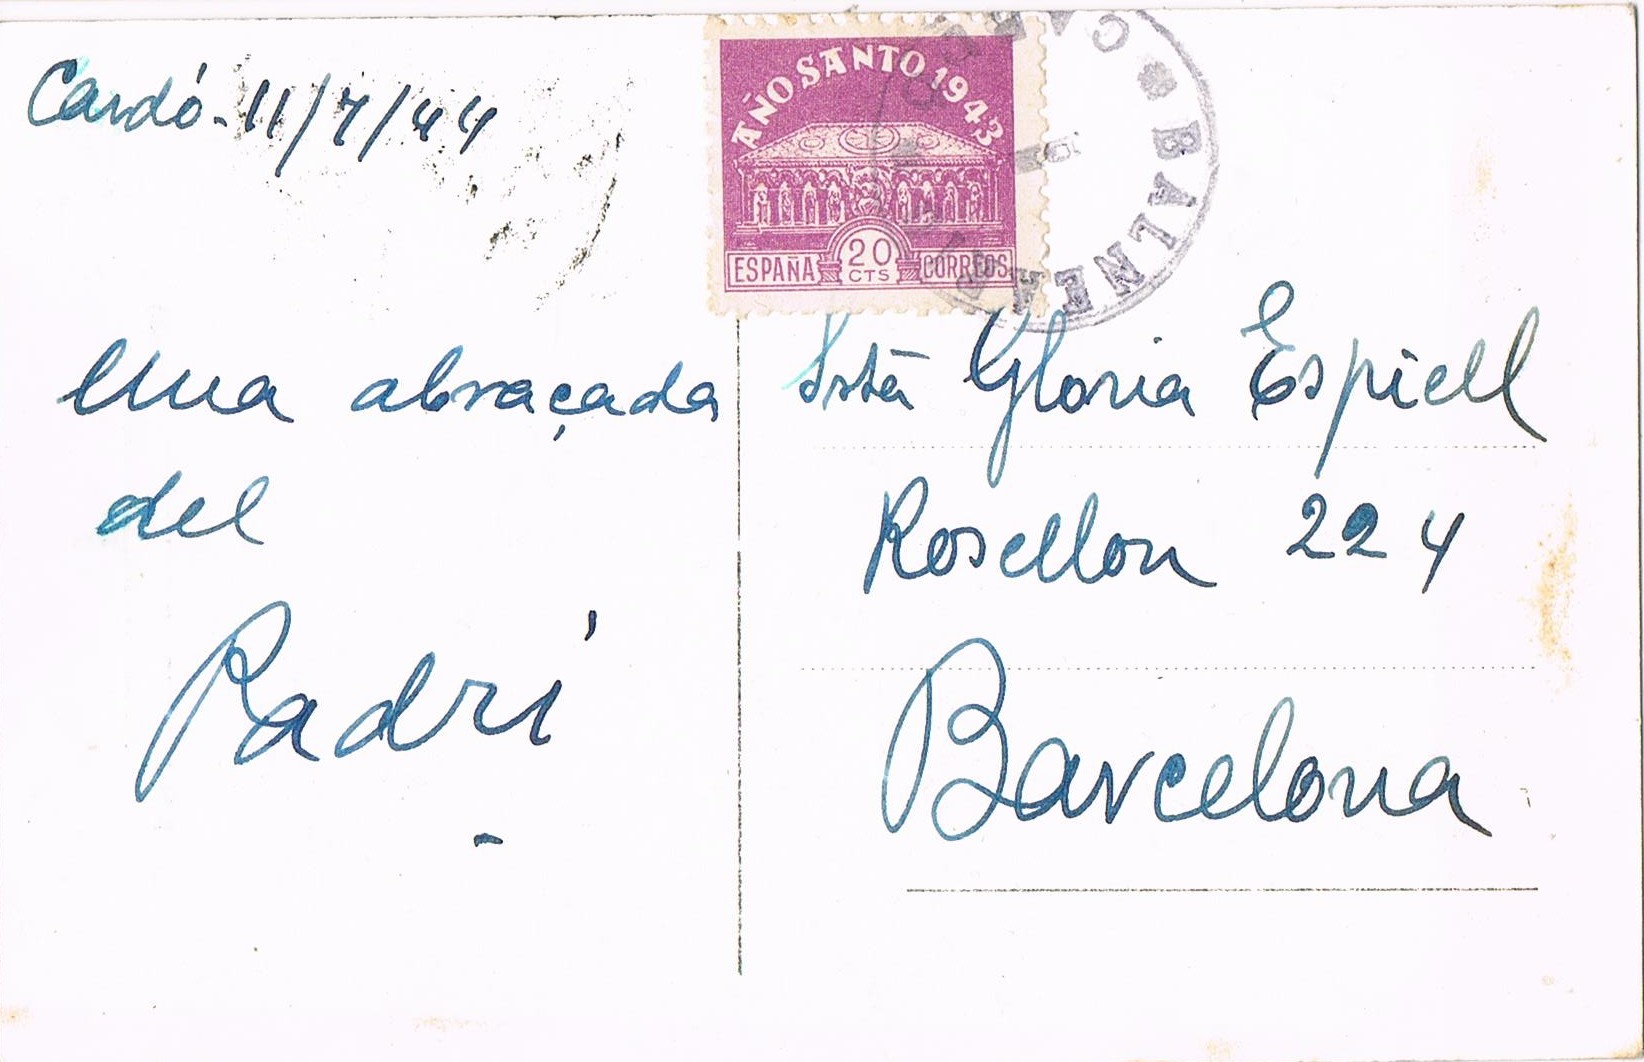 Cardó - 11/7/44
AÑO SANTO 1943
20
CTS
ESPAÑA
CORREOS
BALNEA
Una abraçada
del
Padrí
Srtā Gloria Espiell
Rosellon 224
Barcelona